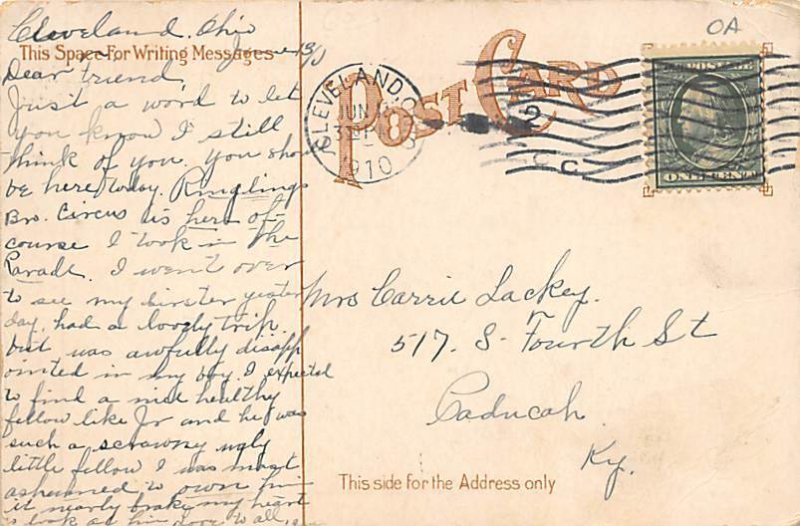 Cleveland, Ohio
June 13/10
This Space For Writing Messages
Dear friend
Just a word to let
you know I still
think of you. you shou
be here today. Ringlings
Bro. Circus is here of
course I took in the
Parade. I went over
to see my sirster yester
day, had a lovely trip.
but was awfully disapp
ointed in my boy. I expected
to find a nice healthy
fellow like Jr and he was
such a scrawny ugly
little fellow I was most
ashamed to own him
it nearly broke my heart
to look at him love to all,
POST CARD
CLEVELAND, O.
JUN
1910
OA
ONE CENT
Mrs Carrie Lackey.
517. S- Fourth St
Paducah
Ky.
This side for the Address only